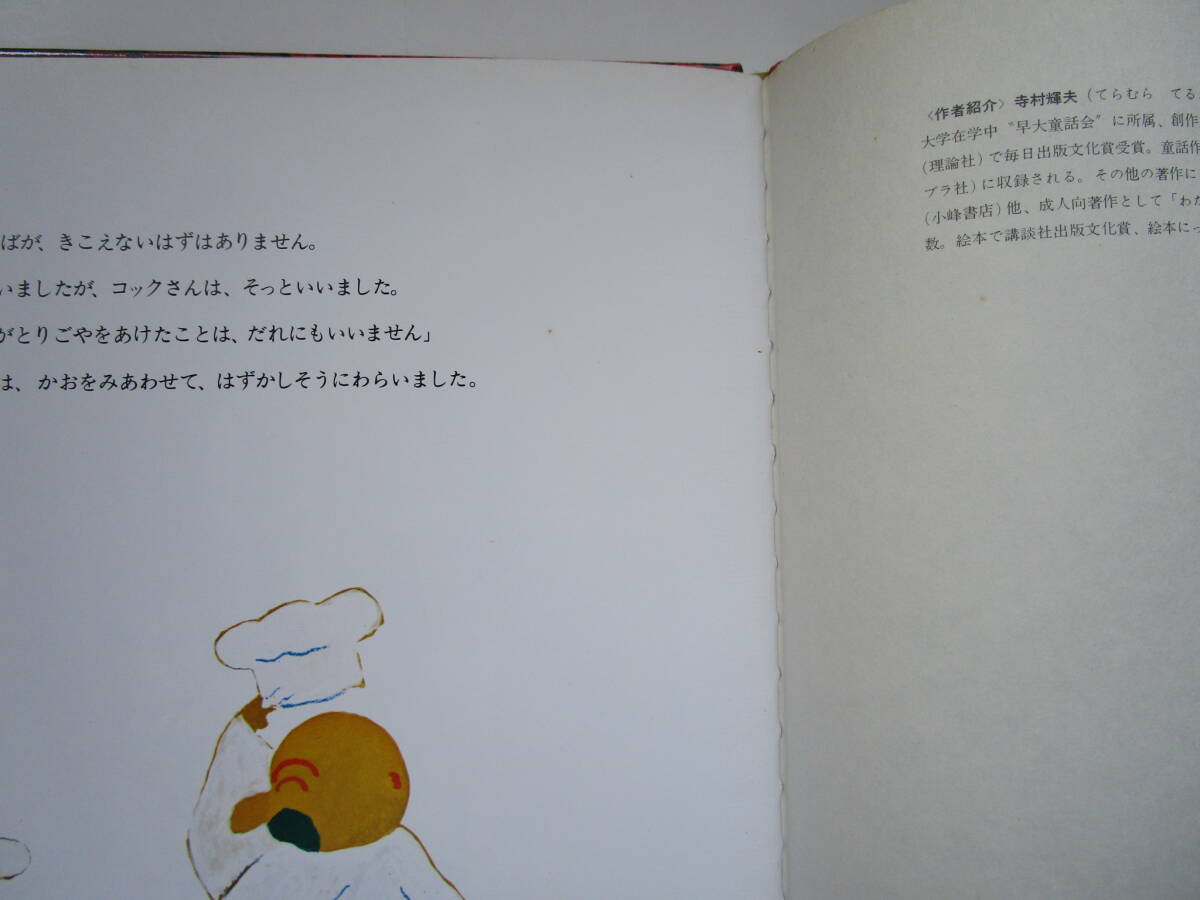 ばが、きこえないはずはありません。
いましたが、コックさんは、そっといいました。
がとりごやをあけたことは、だれにもいいません」
は、かおをみあわせて、はずかしそうにわらいました。
〈作者紹介〉寺村輝夫(てらむら てる
大学在学中〝早大童話会〟に所属、創作
(理論社)で毎日出版文化賞受賞。童話作
プラ社)に収録される。その他の著作に
(小峰書店)他、成人向著作として「わた
数。絵本で講談社出版文化賞、絵本にっ